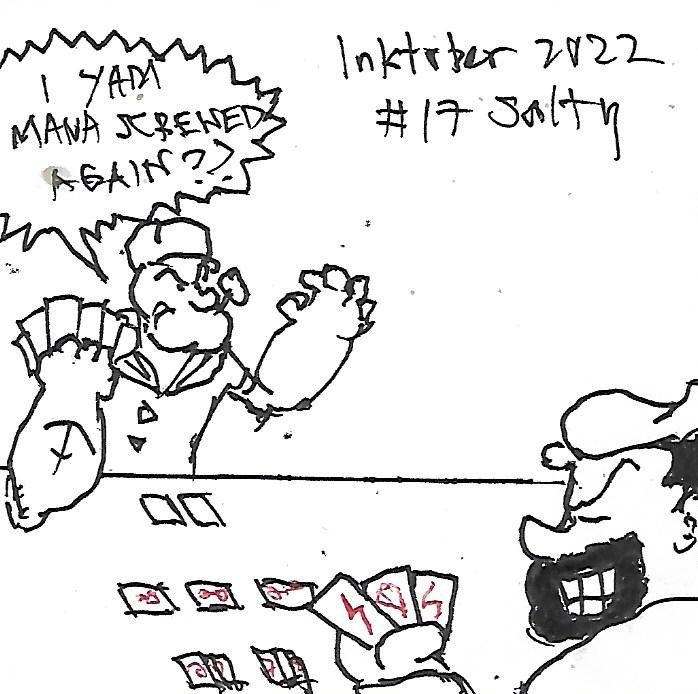 I YAM
MANA SCREWED
AGAIN??
Inktober 2022
#17 Salty